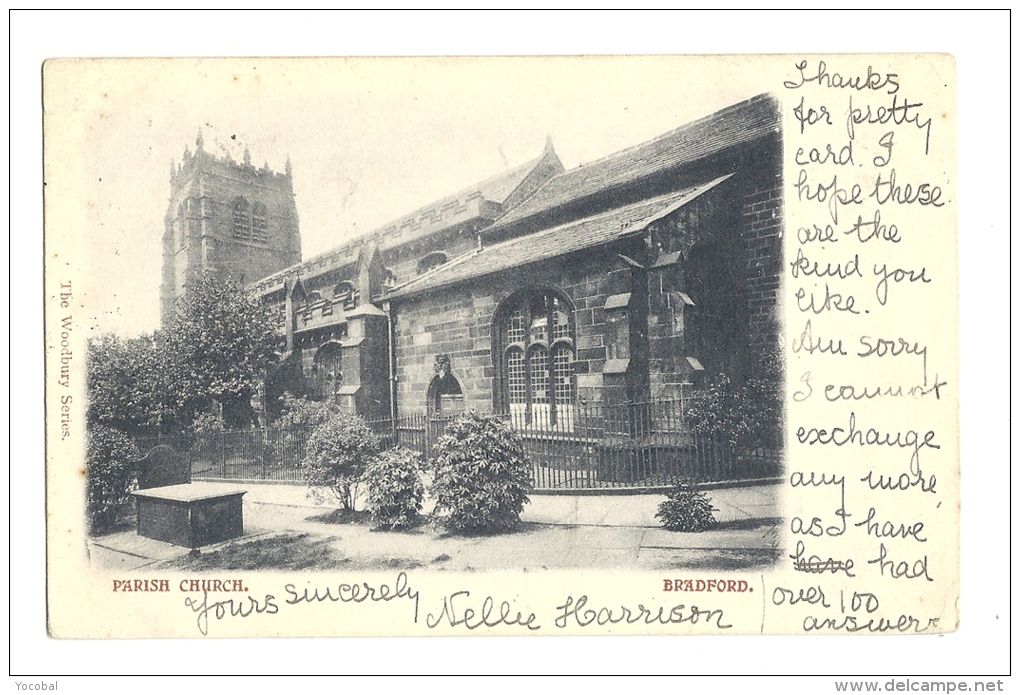 Thanks
for pretty
card. I
hope these
are the
kind you
like.
Am sorry
I cannot
exchange
any more,
as I have
have had
over 100
answers
The Woodbury Series.
PARISH CHURCH.
BRADFORD.
Yours sincerely Nellie Harrison
Yocobal
www.delcampe.net